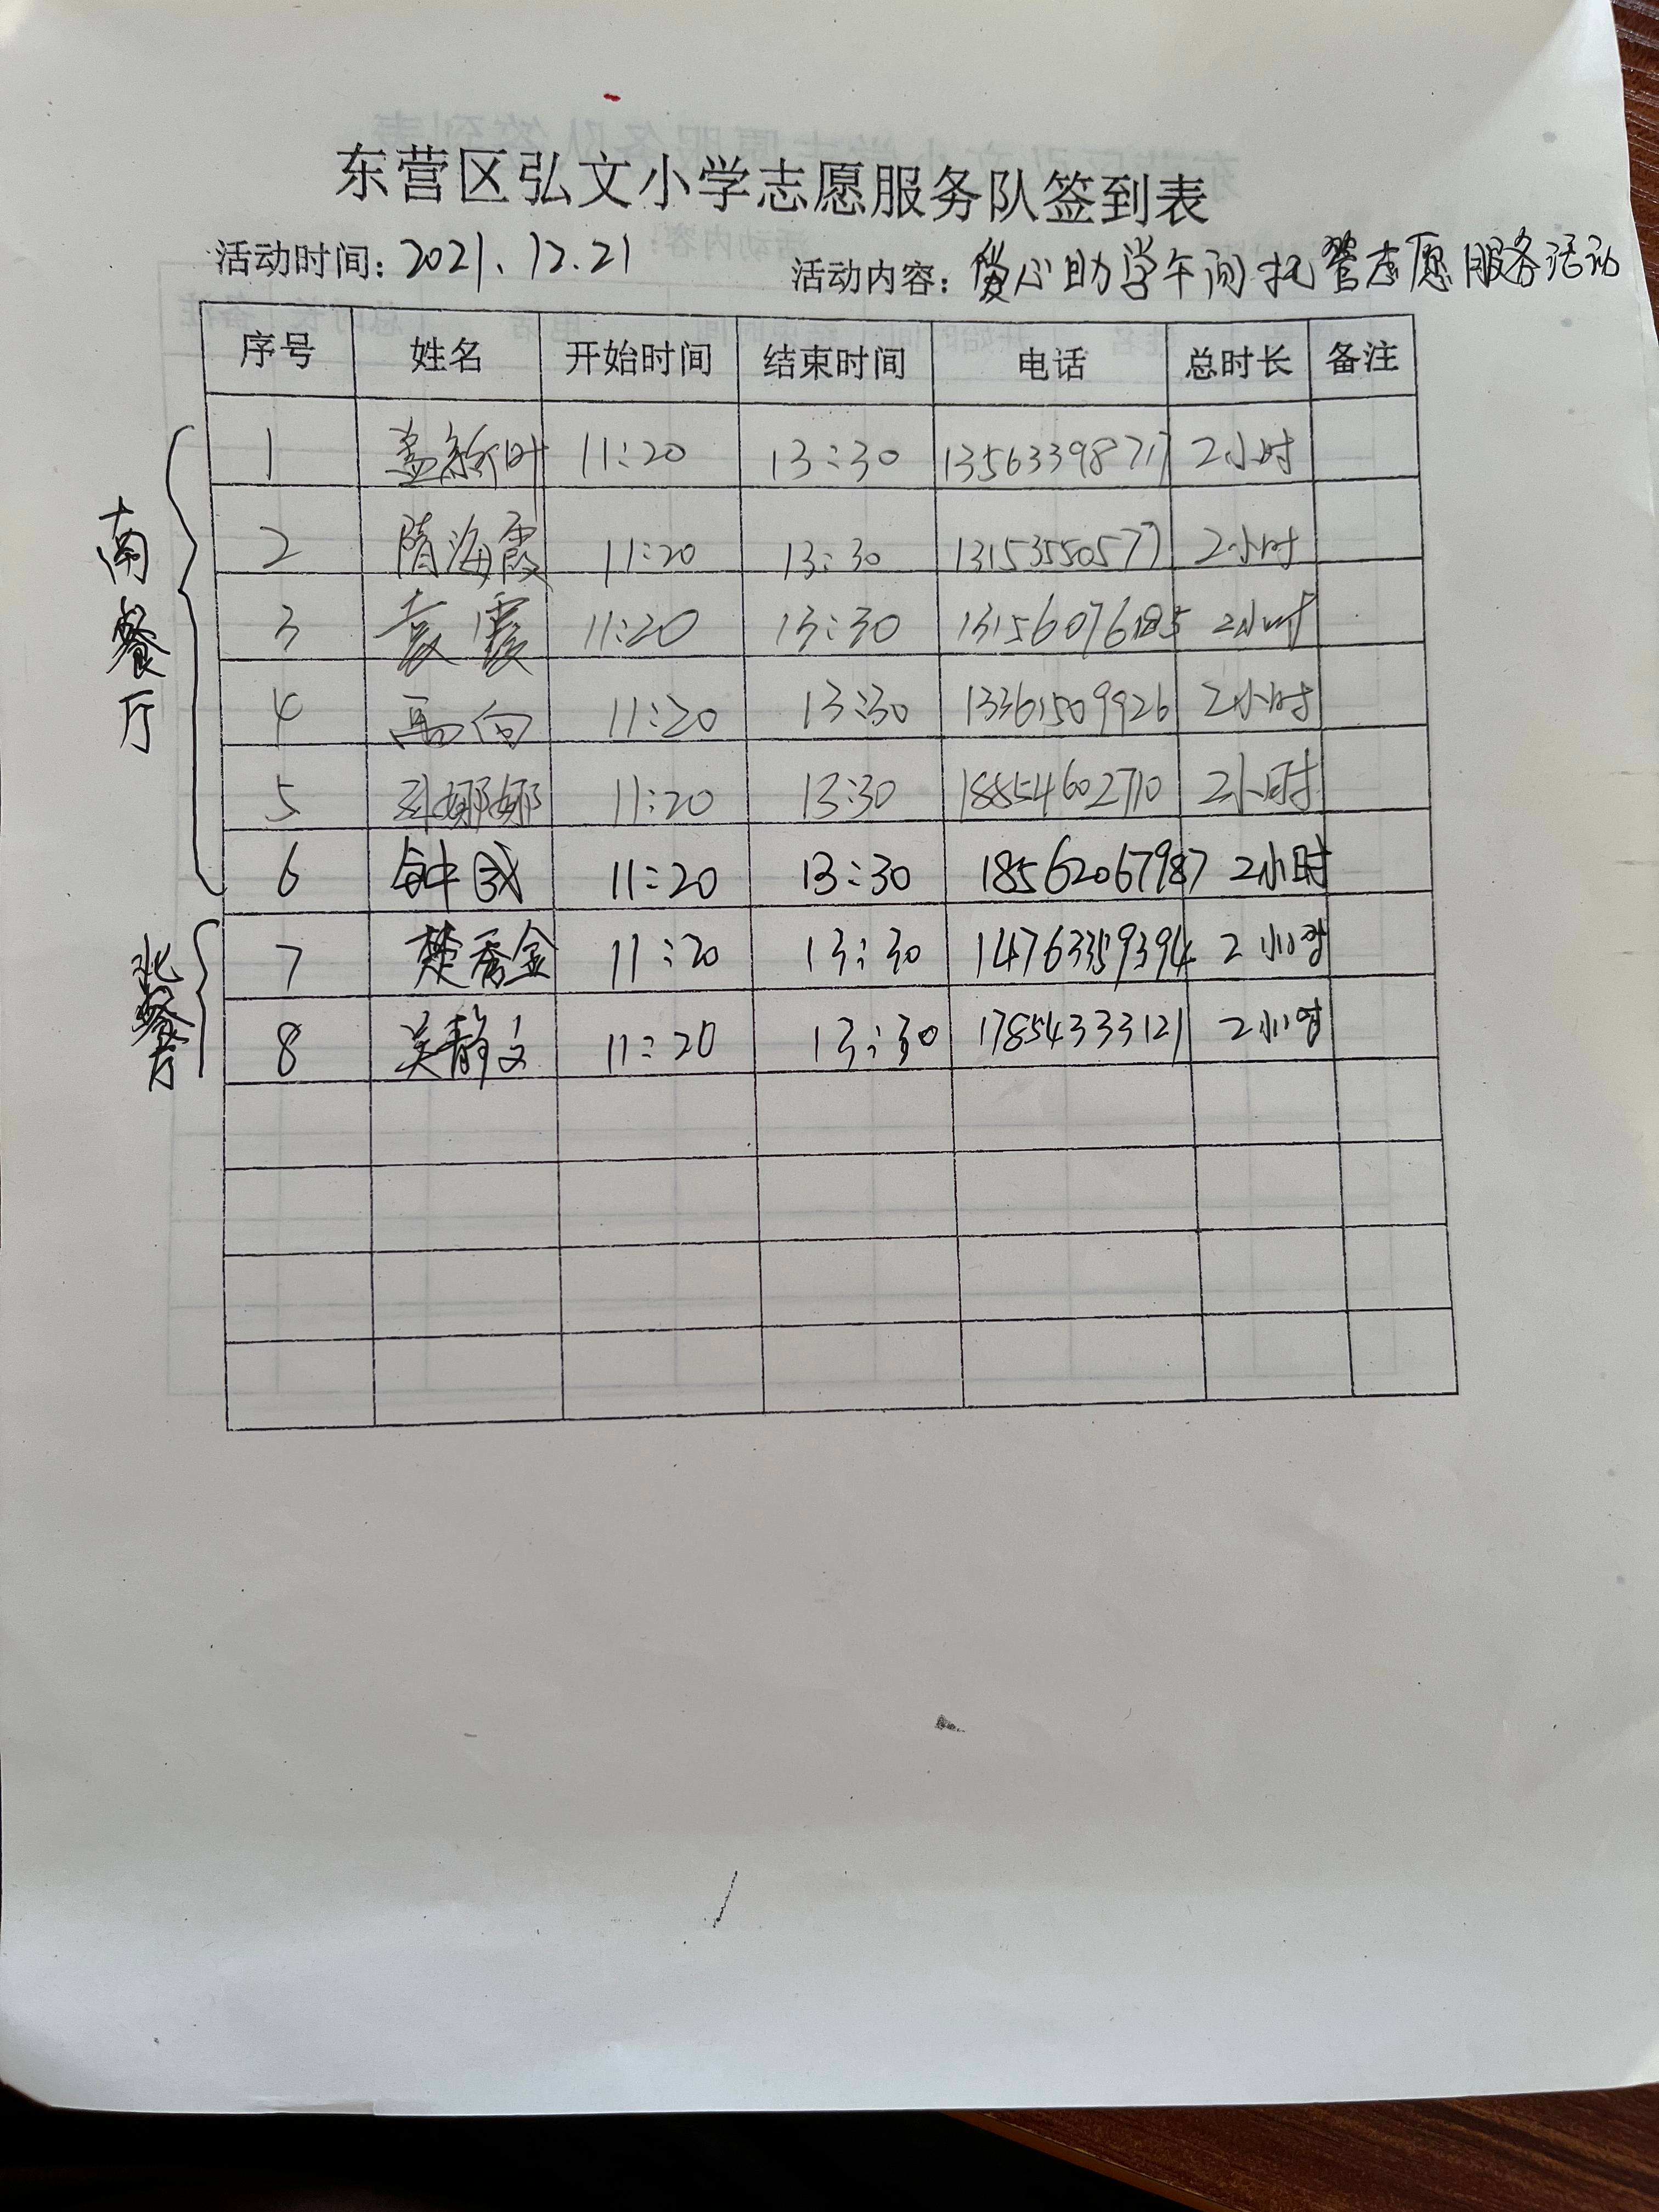 东营区弘文小学志愿服务队签到表
活动时间：2021.12.21 活动内容：爱心助学午间托管志愿服务活动
序号 姓名 开始时间 结束时间 电话 总时长 备注
南餐厅
1 盖新叶 11:20 13:30 13563398717 2小时
2 隋海霞 11:20 13:30 13153550577 2小时
3 袁霞 11:20 13:30 2小时
4 11:20 13:30 13361509926 2小时
5 娜娜 11:20 13:30 18854602710 2小时
6 钟 11:20 13:30 18562067987 2小时
北餐厅
7 楚秀金 11:20 13:30 14763359394 2小时
8 吴静文 11:20 13:30 17854333121 2小时